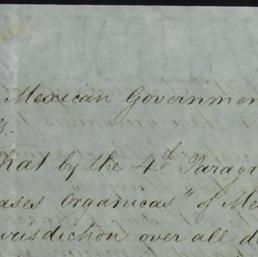 Mexican Governmen
that by the 4th Paragr
ases Organicas" of Me
urisdiction over all d